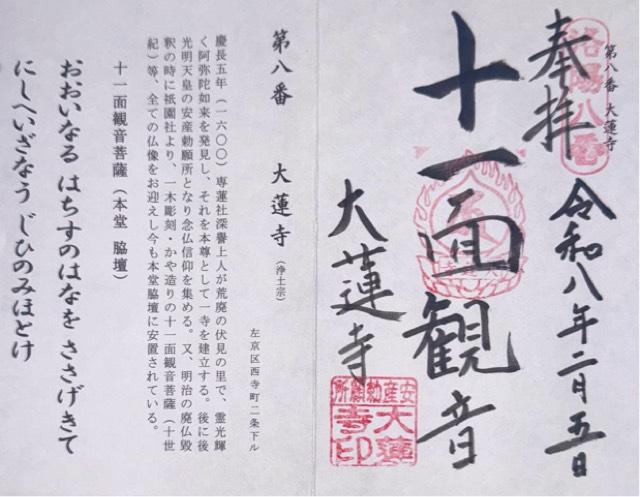 第八番 大蓮寺
洛陽八番
奉拝
令和八年二月五日
十一面観音
大蓮寺
安産勅願所
大蓮寺印
第八番 大蓮寺（浄土宗）
左京区西寺町二条下ル
慶長五年（一六〇〇）専蓮社深譽上人が荒廃の伏見の里で、霊光輝
く阿弥陀如来を発見し、それを本尊として一寺を建立する。後に後
光明天皇の安産勅願所となり念仏信仰を集める。又、明治の廃仏毀
釈の時に祇園社より、一木彫刻・かや造りの十一面観音菩薩（十世
紀）等、全ての仏像をお迎えし今も本堂脇壇に安置されている。
十一面観音菩薩（本堂 脇壇）
おおいなる はちすのはなを ささげきて
にしへいざなう じひのみほとけ